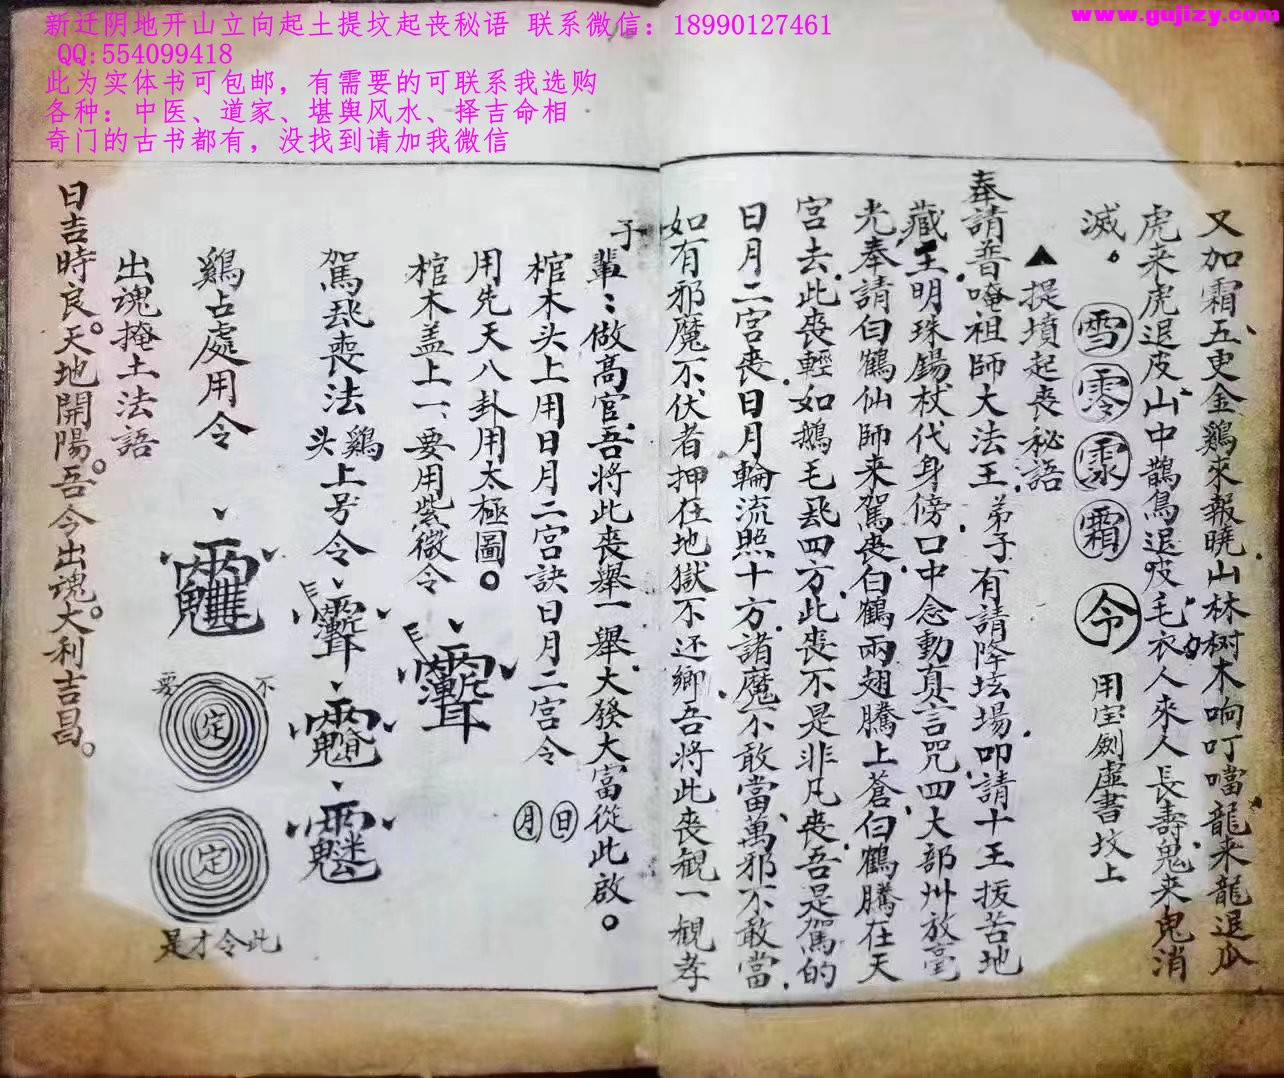 新迁阴地开山立向起土提坟起丧秘语 联系微信：18990127461
QQ:554099418
此为实体书可包邮，有需要的可联系我选购
各种：中医、道家、堪舆风水、择吉命相
奇门的古书都有，没找到请加我微信
www.gujizy.com
又加霜五更金鷄來報曉山林树木响叮噹龍来龍退瓜
虎来虎退皮山中鵲鳥退皮毛衣人來人長壽鬼来鬼消
滅。
雪 零 霜 令 用宝劍虛書坟上
▲提墳起丧秘語
奉請普唵祖師大法王弟子有請降坛場叩請十王拔苦地
藏王明珠錫杖代身傍口中念動真言咒四大部州放毫
光奉請白鶴仙師来駕喪白鶴兩翅騰上蒼白鶴騰在天
宫去此丧輕如鵝毛飛四方此丧不是非凡丧吾是駕的
日月二宫丧日月輪流照十方諸魔不敢當萬邪不敢當
如有邪魔不伏者押在地獄不还鄉吾將此丧観一観孝
子輩輩做高官吾將此丧舉一舉大發大富從此啟。
棺木头上用日月二宫訣日月二宫令 日 月
用先天八卦用太極圖。
棺木盖上一要用紫微令
駕飛喪法鷄头上号令
鷄占處用令
不要
定
定
此令才是
出魂掩土法語
日吉時良。天地開陽。吾今出魂。大利吉昌。